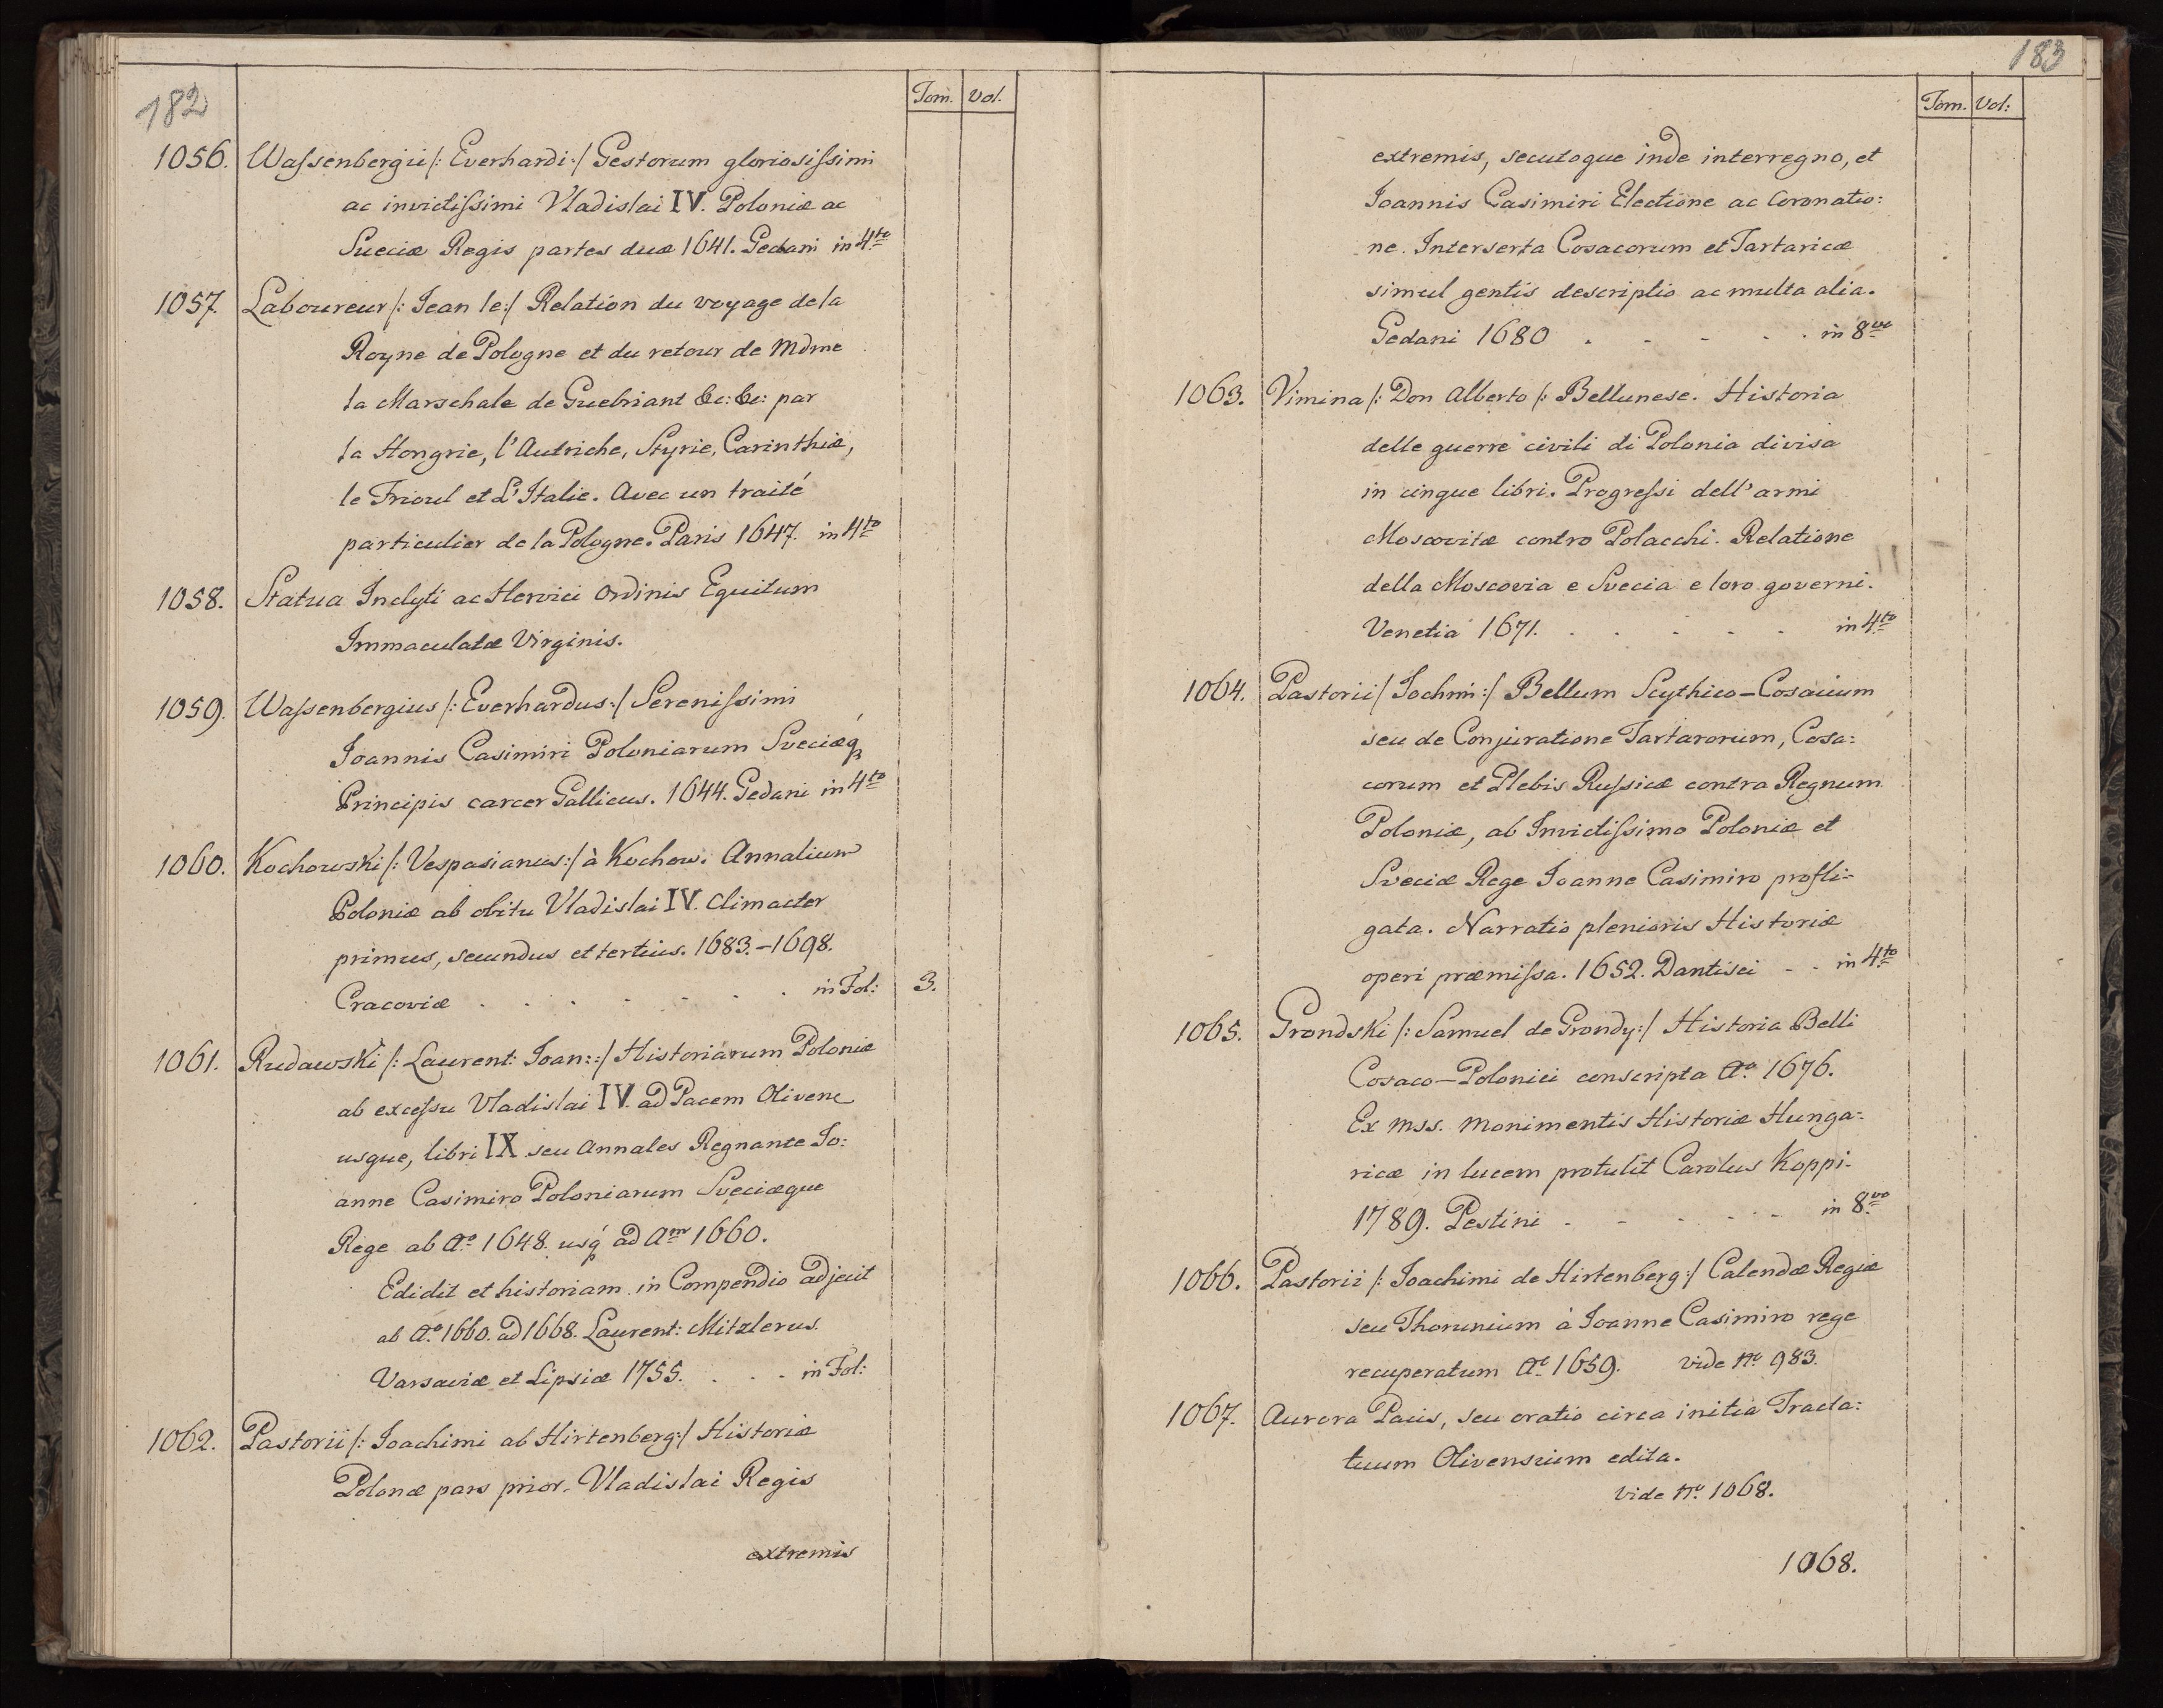 182
Tom. Vol.
1056. Waſsenbergii /: Everhardi :/ Gestorum gloriosiſsimi
ac invictiſsimi Vladislai IV. Poloniæ ac
Sueciæ Regis partes duæ 1641. Gedani in 4to
1057. Laboureur /: Jean le :/ Relation du voyage de la
Royne de Pologne et du retour de Mdme
la Marschale de Guebriant &c: &c: par
la Hongrie, l'Autriche, Styrie, Carinthiæ,
le Frioul et L'Italie. Avec un traité
particulier de la Pologne. Paris 1647. in 4to
1058. Statua Inclyti ac Heroici Ordinis Equitum
Immaculatæ Virginis.
1059. Waſsenbergius /: Everhardus :/ Sereniſsimi
Joannis Casimiri Poloniarum Sveciæq
Principis carcer Gallicus. 1644. Gedani in 4to
1060. Kochowski /: Vespasianus :/ à Kochow. Annalium
Poloniæ ab obitu Vladislai IV. Climacter
primus, secundus et tertius. 1683.–1698.
Cracoviæ . . . . . . . in Fol: 3.
1061. Rudawski /: Laurent: Joan: :/ Historiarum Poloniæ
ab exceſsu Vladislai IV. ad Pacem Olivene
usque, libri IX seu Annales Regnante Jo:
anne Casimiro Poloniarum Sveciæque
Rege ab Ao 1648. usq ad Am 1660.
Edidit et historiam in Compendio adjecit
ab Ao 1660. ad 1668. Laurent: Mitzlerus.
Varsaviæ et Lipsiæ 1755. . . . in Fol:
1062. Pastorii /: Joachimi ab Hirtenberg :/ Historiæ
Polonæ pars prior. Vladislai Regis
extremis
183
Tom. Vol:
extremis, secutoque inde interregno, et
Joannis Casimiri Electione ac Coronatio:
ne. Interserta Cosacorum et Tartaricæ
simul gentis descriptio ac multa alia.
Gedani 1680 . - - . . in 8vo
1063. Vimina /: Don Alberto /: Bellunese. Historia
delle guerre civili di Polonia divisa
in cinque libri. Progreſsi dell'armi
Moscovitæ contro Polacchi. Relatione
della Moscovia e Svecia e loro governi.
Venetia 1671. . . . . . in 4to
1064. Pastorii / Jochmi :/ Bellum Scythico-Cosaicum
seu de Conjuratione Tartarorum, Cosa:
corum et Plebis Ruſsicæ contra Regnum
Poloniæ, ab Invictiſsimo Poloniæ et
Sveciæ Rege Joanne Casimiro profli-
gata. Narratio plenioris Historiæ
operi præmiſsa. 1652. Dantisci - . in 4to
1065. Grondski /: Samuel de Grondy :/ Historia Belli
Cosaco-Polonici conscripta Ao. 1676.
Ex Mss. Monimentis Historiæ Hunga:
ricæ in lucem protulit Carolus Koppi-
1789. Pestini - - - - - in 8vo
1066. Pastorii /: Joachimi de Hirtenberg :/ Calendæ Regiæ
seu Thorunium à Joanne Casimiro rege
recuperatum Ao 1659. vide No 983.
1067. Aurora Pacis, seu oratio circa initia Tracta:
tuum Olivensium edita.
vide No. 1068.
1068.